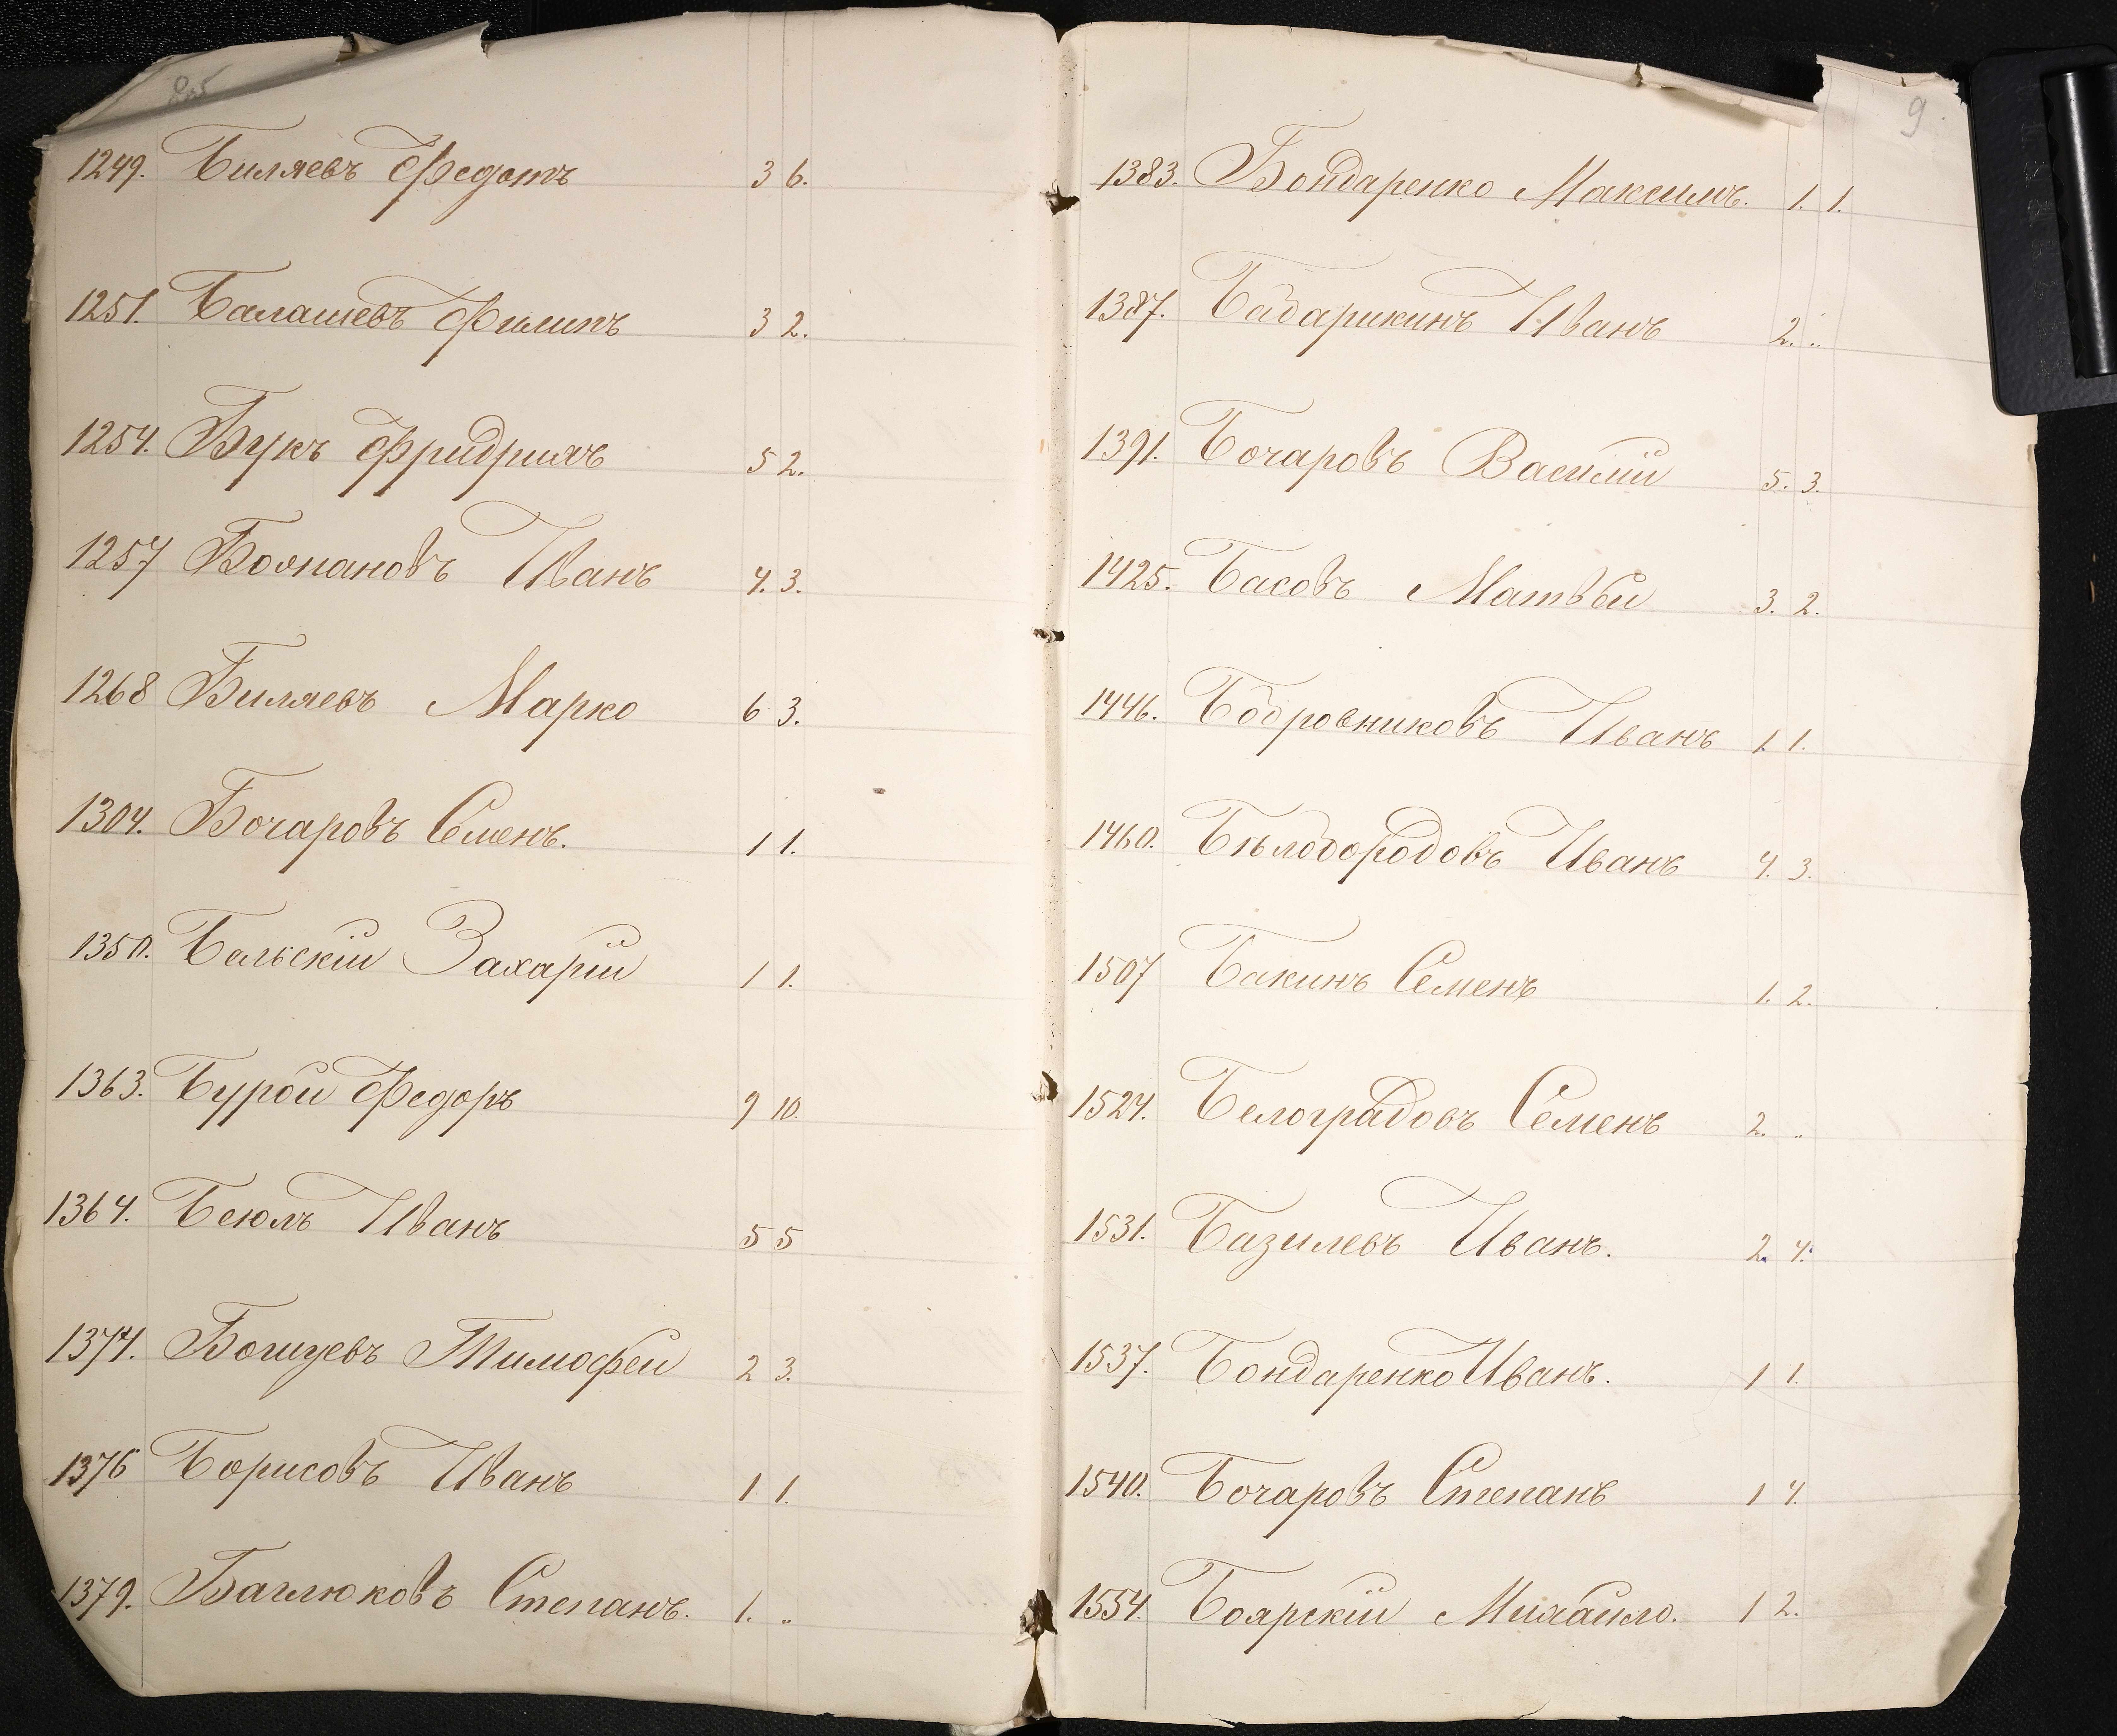 1249. Биляевъ Федотъ 3 6.
1251. Балашевъ Филипъ 3 2.
1254. Букъ Фридрихъ 5 2.
1257 Иванъ 4. 3.
1268 Биляевъ Марко 6 3.
1304. Бочаровъ Семенъ. 1 1.
1350. Бельскій Захарій 1 1.
1363. Бурой Федоръ 9 10.
1364. Беюлъ Иванъ 5 5
1374. Тимофей 2 3.
1376 Борисовъ Иванъ 1 1.
1379. Баглюковъ Степанъ. 1. „
9
1383. Бондаренко Максимъ. 1. 1.
1387. Бабарикинъ Иванъ 2. „
1391. Бочаровъ Василій 5. 3.
1425. Басовъ Матвѣй 3. 2.
1446. Бобровниковъ Иванъ 1. 1.
1460. Бѣлобородовъ Иванъ 4. 3.
1507 Бакинъ Семенъ 1. 2.
1524. Белоградовъ Семенъ 2. „
1531. Базилевъ Иванъ. 2. 4.
1537. Бондаренко Иванъ. 1 1.
1540. Бочаровъ Степанъ 1 4.
1554. Боярскій Михайло. 1 2.